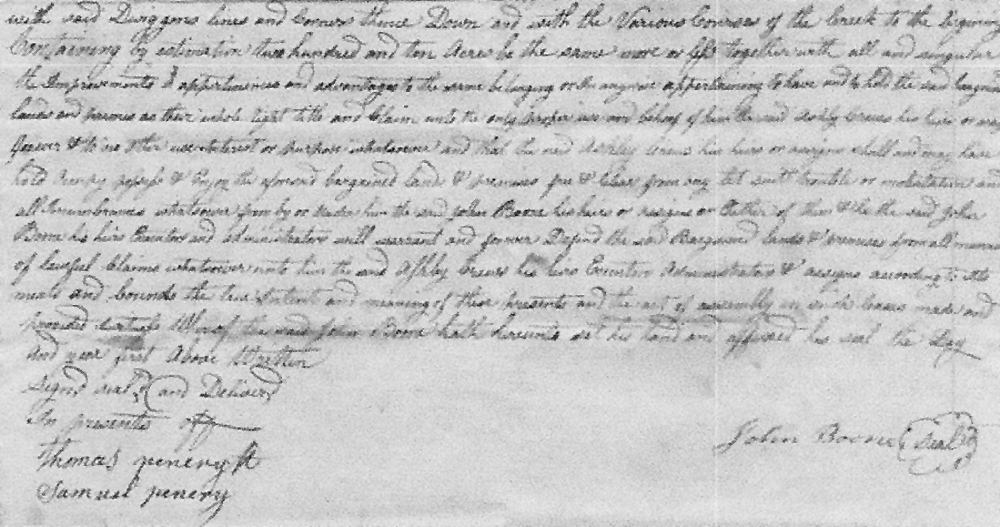 with said Dwiggens lines and Corners thence Down and with the Various Courses of the Creek to the Beginning
Containing by estimation two hundred and ten Acres be the same more or less together with all and singular
the Improvements & appertinences and advantages to the same belonging or in anywise appertaining to have and to hold the said bargained
lands and premises as their whole right title and Claim unto the only proper use and behoof of him the said Ashley Crews his heirs or assigns
forever & to no other use interest or purpose whatsoever and that the said Ashley Crews his heirs or assigns shall and may have
hold occupy possess & Enjoy the aforesd bargained lands & premises free & Clear from any let suit trouble or molestation and
all Incumbrances whatsoever from by or under him the said John Boone his heirs or assigns or Either of them & he the said John
Boone his heirs Executors and administrators will warrant and forever Defend the said Bargained lands & premises from all manner
of lawful Claims whatsoever unto him the said Ashley Crews his heirs Executors Administrators & assigns according to the
meats and bounds the true Intent and meaning of these presents and the act of assembly in such cases made and
provided Whereof the said John Boone hath hereunto set his hand and affixed his seal the Day
and year first Above Written
Signd seal'd and Deliverd
In presents off
Thomas penery
Samuel penery
John Boone (Seal)